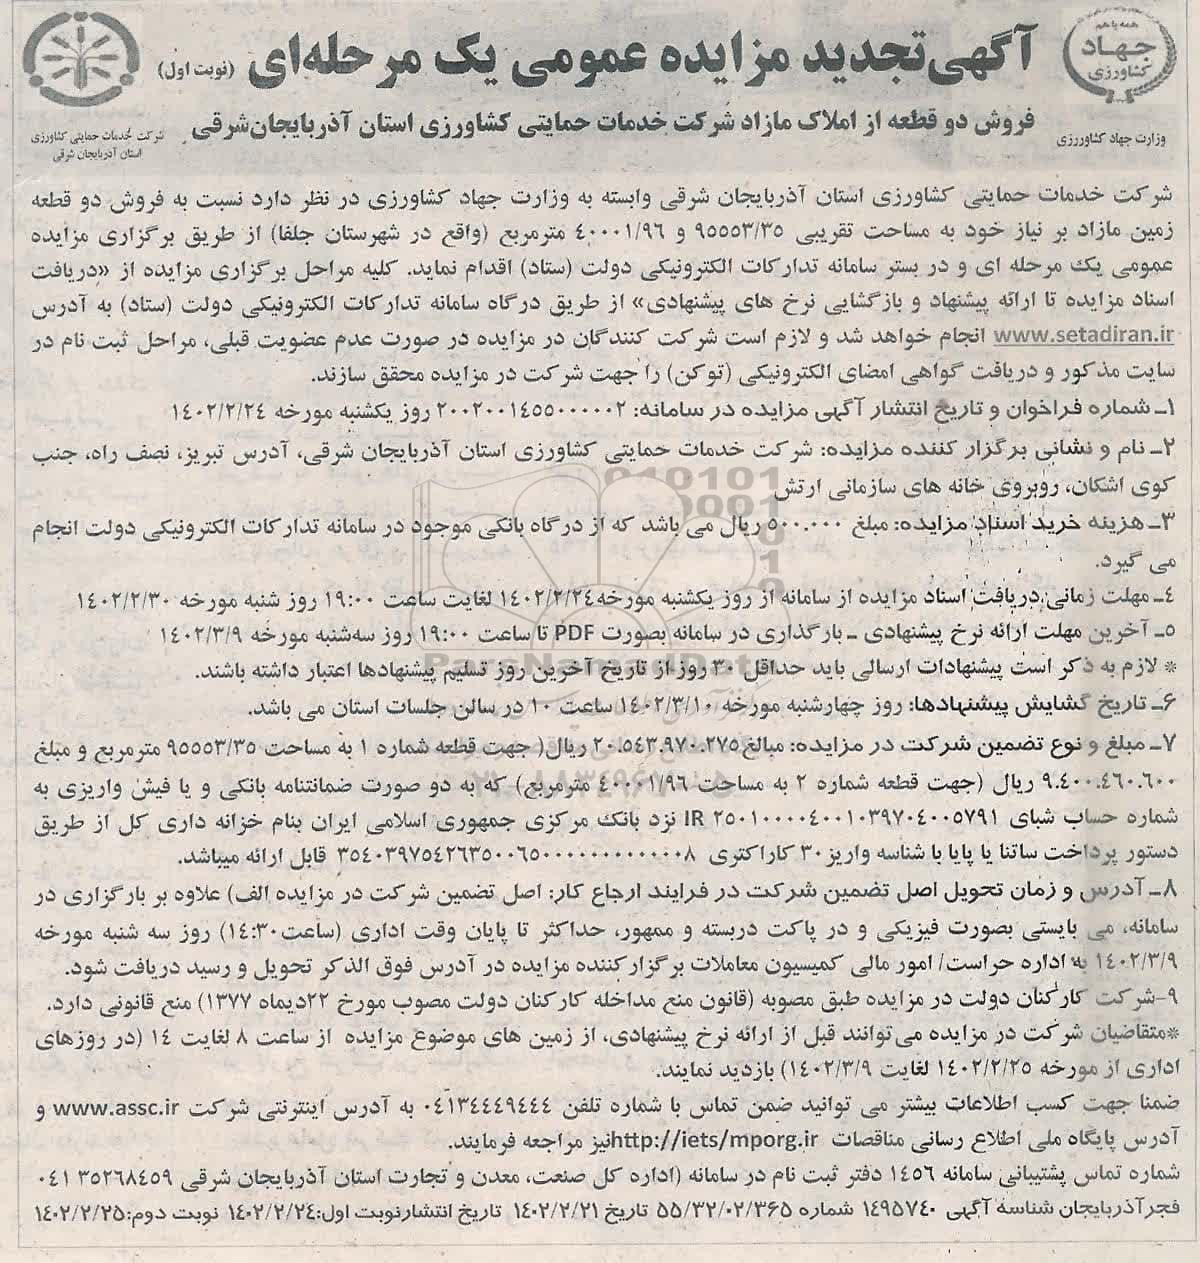 همه با هم
جهاد
کشاورزی
وزارت جهاد کشاورزی
آگهی تجدید مزایده عمومی یک مرحله‌ای (نوبت اول)
فروش دو قطعه از املاک مازاد شرکت خدمات حمایتی کشاورزی استان آذربایجان‌شرقی
شرکت خدمات حمایتی کشاورزی
استان آذربایجان شرقی
شرکت خدمات حمایتی کشاورزی استان آذربایجان شرقی وابسته به وزارت جهاد کشاورزی در نظر دارد نسبت به فروش دو قطعه
زمین مازاد بر نیاز خود به مساحت تقریبی ۹۵۵۵۳/۳۵ و ۴۰۰۰۱/۹۶ مترمربع (واقع در شهرستان جلفا) از طریق برگزاری مزایده
عمومی یک مرحله ای و در بستر سامانه تدارکات الکترونیکی دولت (ستاد) اقدام نماید. کلیه مراحل برگزاری مزایده از «دریافت
اسناد مزایده تا ارائه پیشنهاد و بازگشایی نرخ های پیشنهادی» از طریق درگاه سامانه تدارکات الکترونیکی دولت (ستاد) به آدرس
www.setadiran.ir انجام خواهد شد و لازم است شرکت کنندگان در مزایده در صورت عدم عضویت قبلی، مراحل ثبت نام در
سایت مذکور و دریافت گواهی امضای الکترونیکی (توکن) را جهت شرکت در مزایده محقق سازند.
۱ـ شماره فراخوان و تاریخ انتشار آگهی مزایده در سامانه: ۲۰۰۲۰۰۱۴۵۵۰۰۰۰۰۲ روز یکشنبه مورخه ۱۴۰۲/۲/۲۴
۲ـ نام و نشانی برگزار کننده مزایده: شرکت خدمات حمایتی کشاورزی استان آذربایجان شرقی، آدرس تبریز، نصف راه، جنب
کوی اشکان، روبروی خانه های سازمانی ارتش
۳ـ هزینه خرید اسناد مزایده: مبلغ ۵۰۰.۰۰۰ ریال می باشد که از درگاه بانکی موجود در سامانه تدارکات الکترونیکی دولت انجام
می گیرد.
۴ـ مهلت زمانی دریافت اسناد مزایده از سامانه از روز یکشنبه مورخه۱۴۰۲/۲/۲۴ لغایت ساعت ۱۹:۰۰ روز شنبه مورخه ۱۴۰۲/۲/۳۰
۵ـ آخرین مهلت ارائه نرخ پیشنهادی ـ بارگذاری در سامانه بصورت PDF تا ساعت ۱۹:۰۰ روز سه‌شنبه مورخه ۱۴۰۲/۳/۹
* لازم به ذکر است پیشنهادات ارسالی باید حداقل ۳۰ روز از تاریخ آخرین روز تسلیم پیشنهادها اعتبار داشته باشند.
۶ـ تاریخ گشایش پیشنهادها: روز چهارشنبه مورخه ۱۴۰۲/۳/۱۰ ساعت ۱۰ در سالن جلسات استان می باشد.
۷ـ مبلغ و نوع تضمین شرکت در مزایده: مبالغ۲۰.۵۴۳.۹۷۰.۲۷۵ ریال( جهت قطعه شماره ۱ به مساحت ۹۵۵۵۳/۳۵ مترمربع و مبلغ
۹.۴۰۰.۴۶۰.۶۰۰ ریال (جهت قطعه شماره ۲ به مساحت ۴۰۰۰۱/۹۶ مترمربع) که به دو صورت ضمانتنامه بانکی و یا فیش واریزی به
شماره حساب شبای IR ۲۵۰۱۰۰۰۰۴۰۰۱۰۳۹۷۰۴۰۰۵۷۹۱ نزد بانک مرکزی جمهوری اسلامی ایران بنام خزانه داری کل از طریق
دستور پرداخت ساتنا یا پایا با شناسه واریز۳۰ کاراکتری ۳۵۴۰۳۹۷۵۴۲۶۳۵۰۰۶۵۰۰۰۰۰۰۰۰۰۰۰۰۸ قابل ارائه میباشد.
۸ـ آدرس و زمان تحویل اصل تضمین شرکت در فرایند ارجاع کار: اصل تضمین شرکت در مزایده الف) علاوه بر بارگزاری در
سامانه، می بایستی بصورت فیزیکی و در پاکت دربسته و ممهور، حداکثر تا پایان وقت اداری (ساعت۱۴:۳۰) روز سه شنبه مورخه
۱۴۰۲/۳/۹ به اداره حراست/ امور مالی کمیسیون معاملات برگزارکننده مزایده در آدرس فوق الذکر تحویل و رسید دریافت شود.
۹-شرکت کارکنان دولت در مزایده طبق مصوبه (قانون منع مداخله کارکنان دولت مصوب مورخ ۲۲دیماه ۱۳۷۷) منع قانونی دارد.
*متقاضیان شرکت در مزایده می‌توانند قبل از ارائه نرخ پیشنهادی، از زمین های موضوع مزایده از ساعت ۸ لغایت ۱۴ (در روزهای
اداری از مورخه ۱۴۰۲/۲/۲۵ لغایت ۱۴۰۲/۳/۹) بازدید نمایند.
ضمنا جهت کسب اطلاعات بیشتر می توانید ضمن تماس با شماره تلفن ۰۴۱۳۴۴۴۹۴۴۴ به آدرس اینترنتی شرکت www.assc.ir و
آدرس پایگاه ملی اطلاع رسانی مناقصات http://iets/mporg.irنیز مراجعه فرمایند.
شماره تماس پشتیبانی سامانه ۱۴۵۶ دفتر ثبت نام در سامانه (اداره کل صنعت، معدن و تجارت استان آذربایجان شرقی ۳۵۲۶۸۴۵۹ ۰۴۱
فجرآذربایجان شناسه آگهی ۱۴۹۵۷۴۰ شماره ۵۵/۳۲/۰۲/۳۶۵ تاریخ ۱۴۰۲/۲/۲۱ تاریخ انتشارنوبت اول:۱۴۰۲/۲/۲۴ نوبت دوم:۱۴۰۲/۲/۲۵